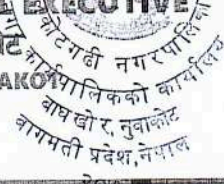 EXECUTIVE
कोटगढी नगरपालि
AKOT
कार्यपालिकको कार्यालय
बाघखोर, नुवाकोट
बागमती प्रदेश, नेपाल